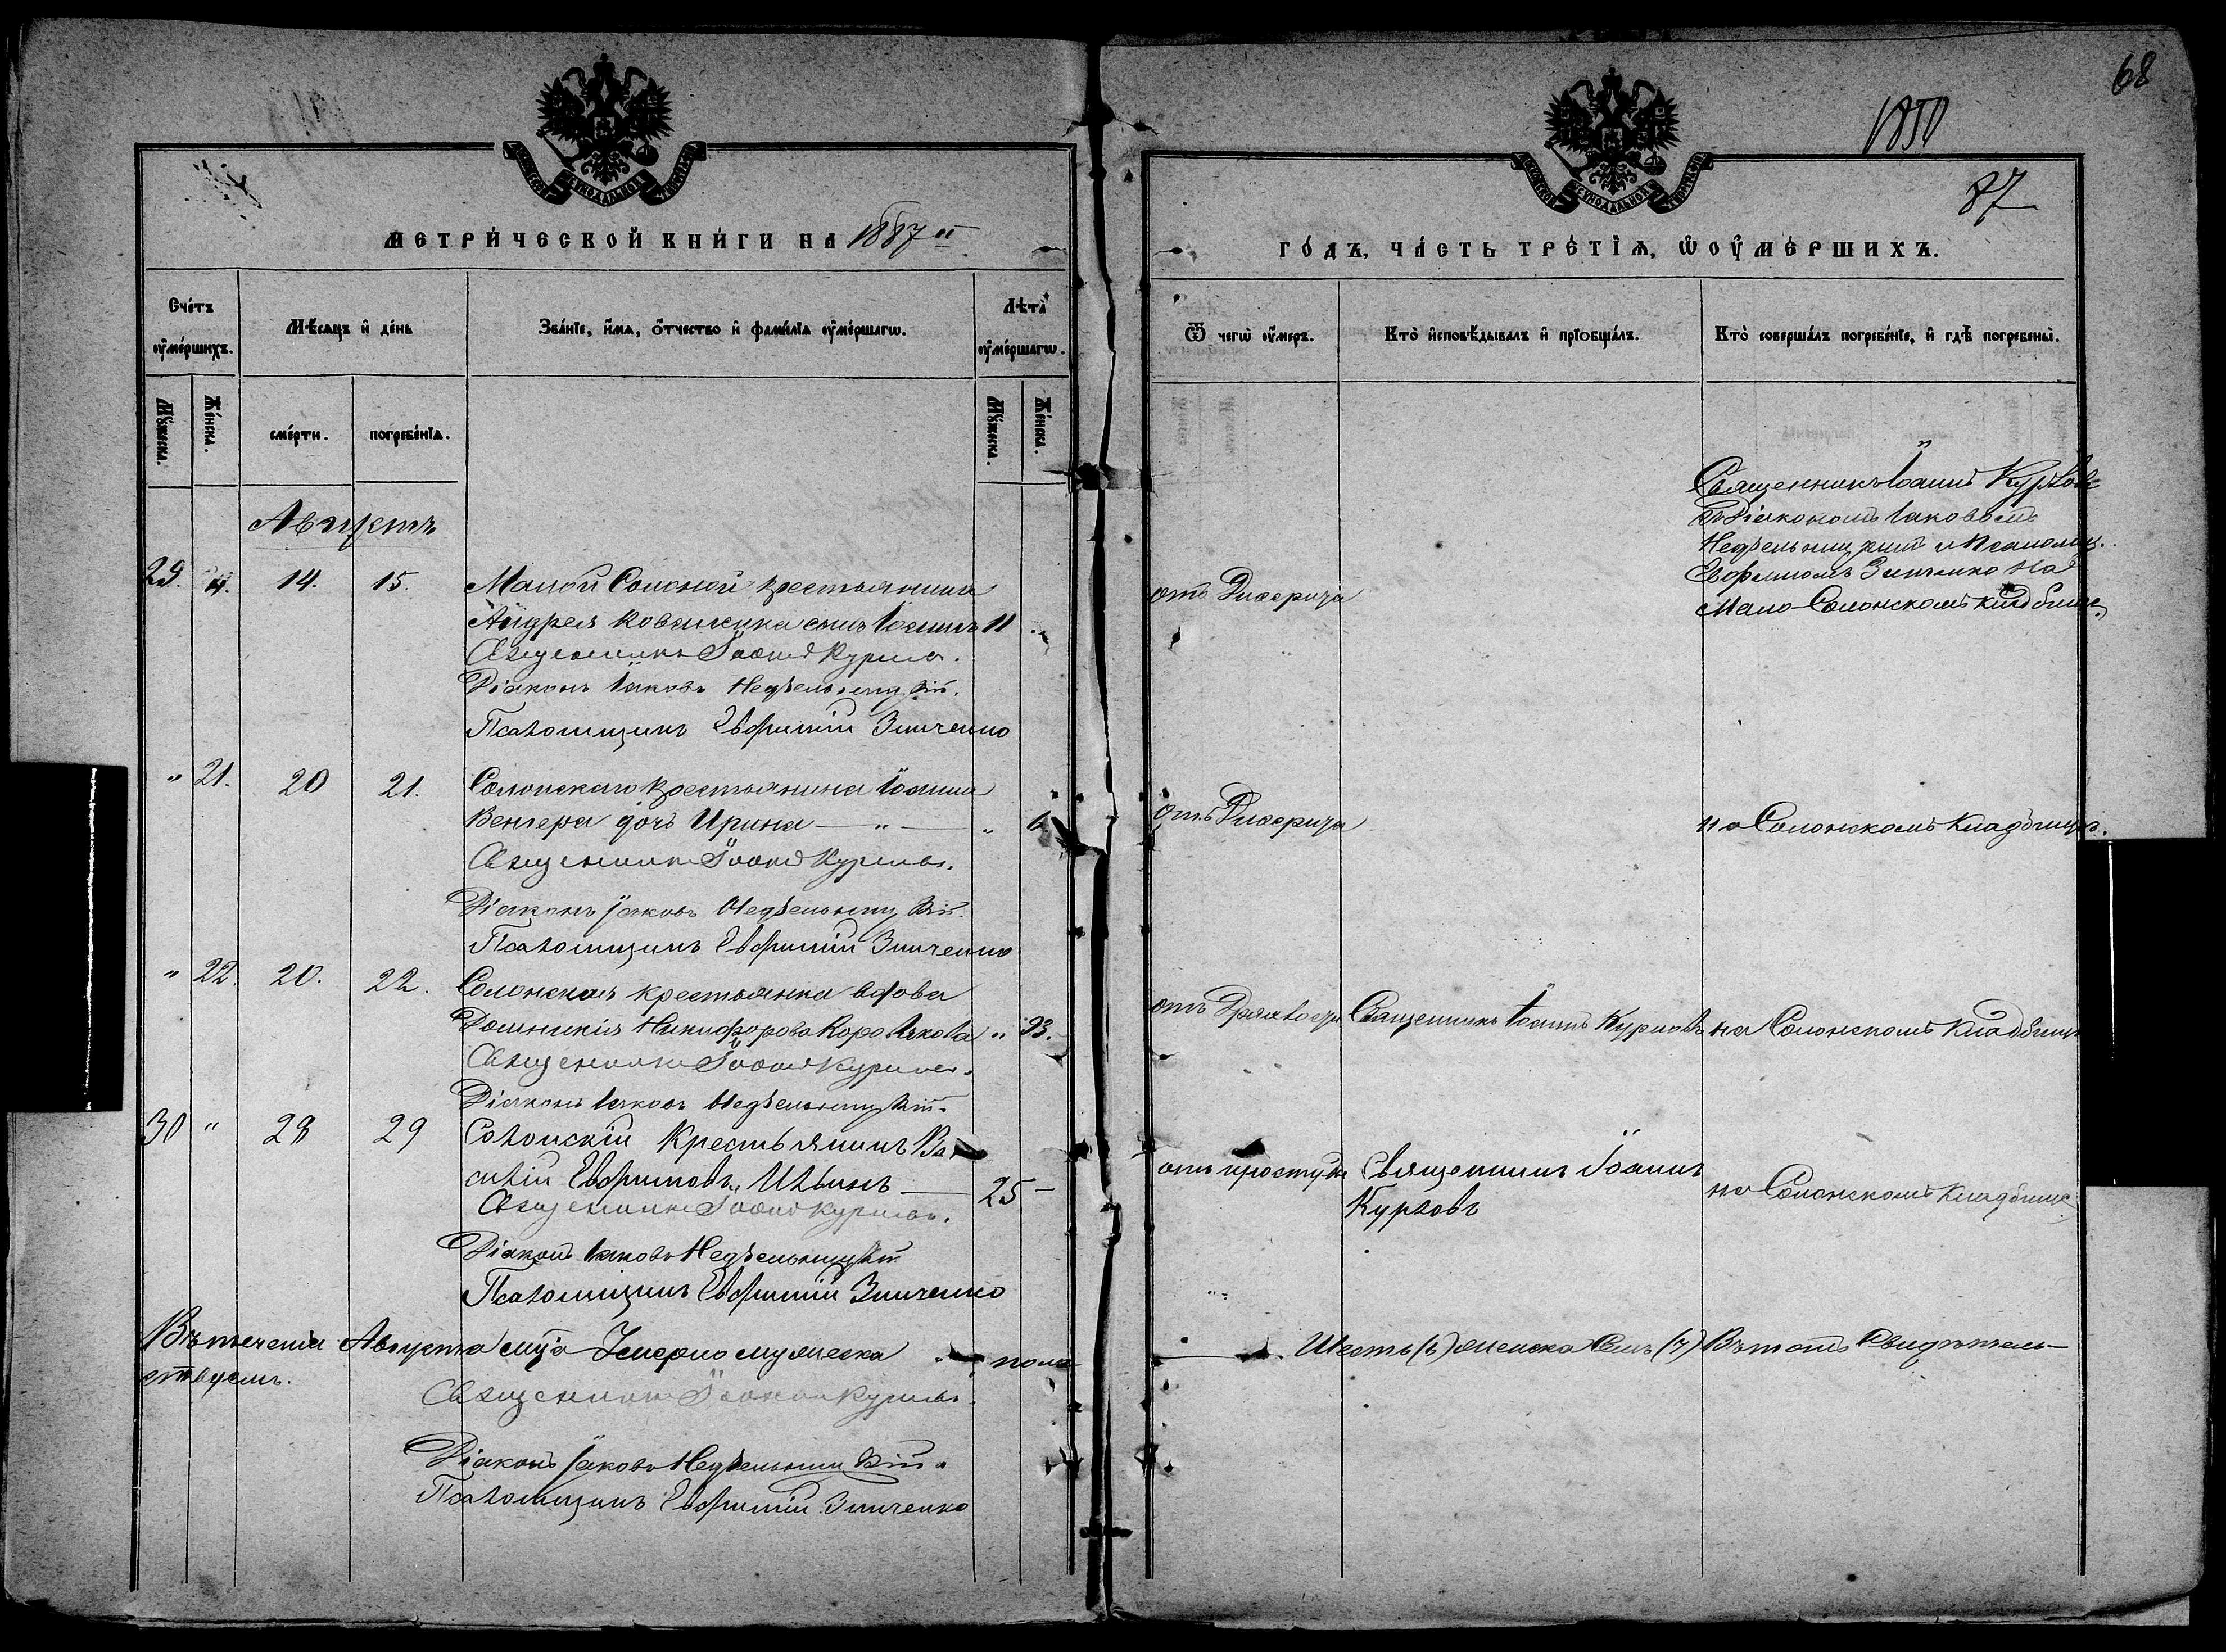 68
1850
87
МЕТРИЧЕСКОЙ КНИГИ НА 1887й
ГОДЪ, ЧАСТЬ ТРЕТІЯ, Ѡ ОУМЕРШИХЪ.
Счетъ оумершихъ.
Мѣсяцъ и день
Званіе, имя, отчество и фамилія оумершагѡ.
Лѣта оумершагѡ.
Ѿ чегѡ оумеръ.
Кто исповѣдывалъ и пріобщалъ.
Кто совершалъ погребеніе, и гдѣ погребены.
Мужеска.
Женска.
смерти.
погребенія.
Мужеска.
Женска.
Августъ
Священникъ Іоаннъ Курловъ
съ Діакономъ Іаковомъ
Недѣльницкимъ и Псаломщ.
Евфиміомъ Зинченко на
Мало-Солонскомъ кладбищѣ
29. " 14. 15. Малой Солоной крестьянина
Андрея Коваленка сынъ Іоаннъ 11 отъ Дифтерита
Священникъ Іоаннъ Курловъ.
Діаконъ Іаковъ Недѣльницкій.
Псаломщикъ Евфимій Зинченко
" 21. 20 21. Солонскаго крестьянина Іоанна
Венгера дочь Ирина — " — " 6. отъ Дифтерита на Солонскомъ кладбищѣ.
Священникъ Іоаннъ Курловъ.
Діаконъ Іаковъ Недѣльницкій.
Псаломщикъ Евфимій Зинченко
" 22. 20. 22. Солонская крестьянка вдова
Домникія Никифорова " 93. отъ Дряхлости Священникъ Іоаннъ Курловъ на Солонскомъ кладбищѣ
Священникъ Іоаннъ Курловъ.
Діаконъ Іаковъ Недѣльницкій.
30 " 28 29 Солонскій Крестьянинъ Ва-
силій Евфимовъ Ильинъ — 25 — отъ простуды Священникъ Іоаннъ
Курловъ на Солонскомъ кладбищѣ
Священникъ Іоаннъ Курловъ.
Діаконъ Іаковъ Недѣльницкій
Псаломщикъ Евфимій Зинченко
Въ теченіи Августа мца Умерло мужеска пола — Шесть (6) женска Семь (7) Въ томъ Свидѣтель-
ствуемъ.
Священникъ Іоаннъ Курловъ.
Діаконъ Іаковъ Недѣльницкій.
Псаломщикъ Евфимій Зинченко